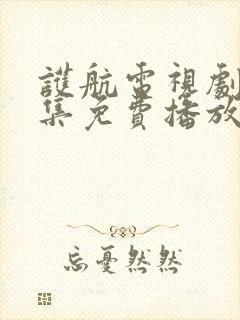 護航電視劇
集免費播放
忘憂然然